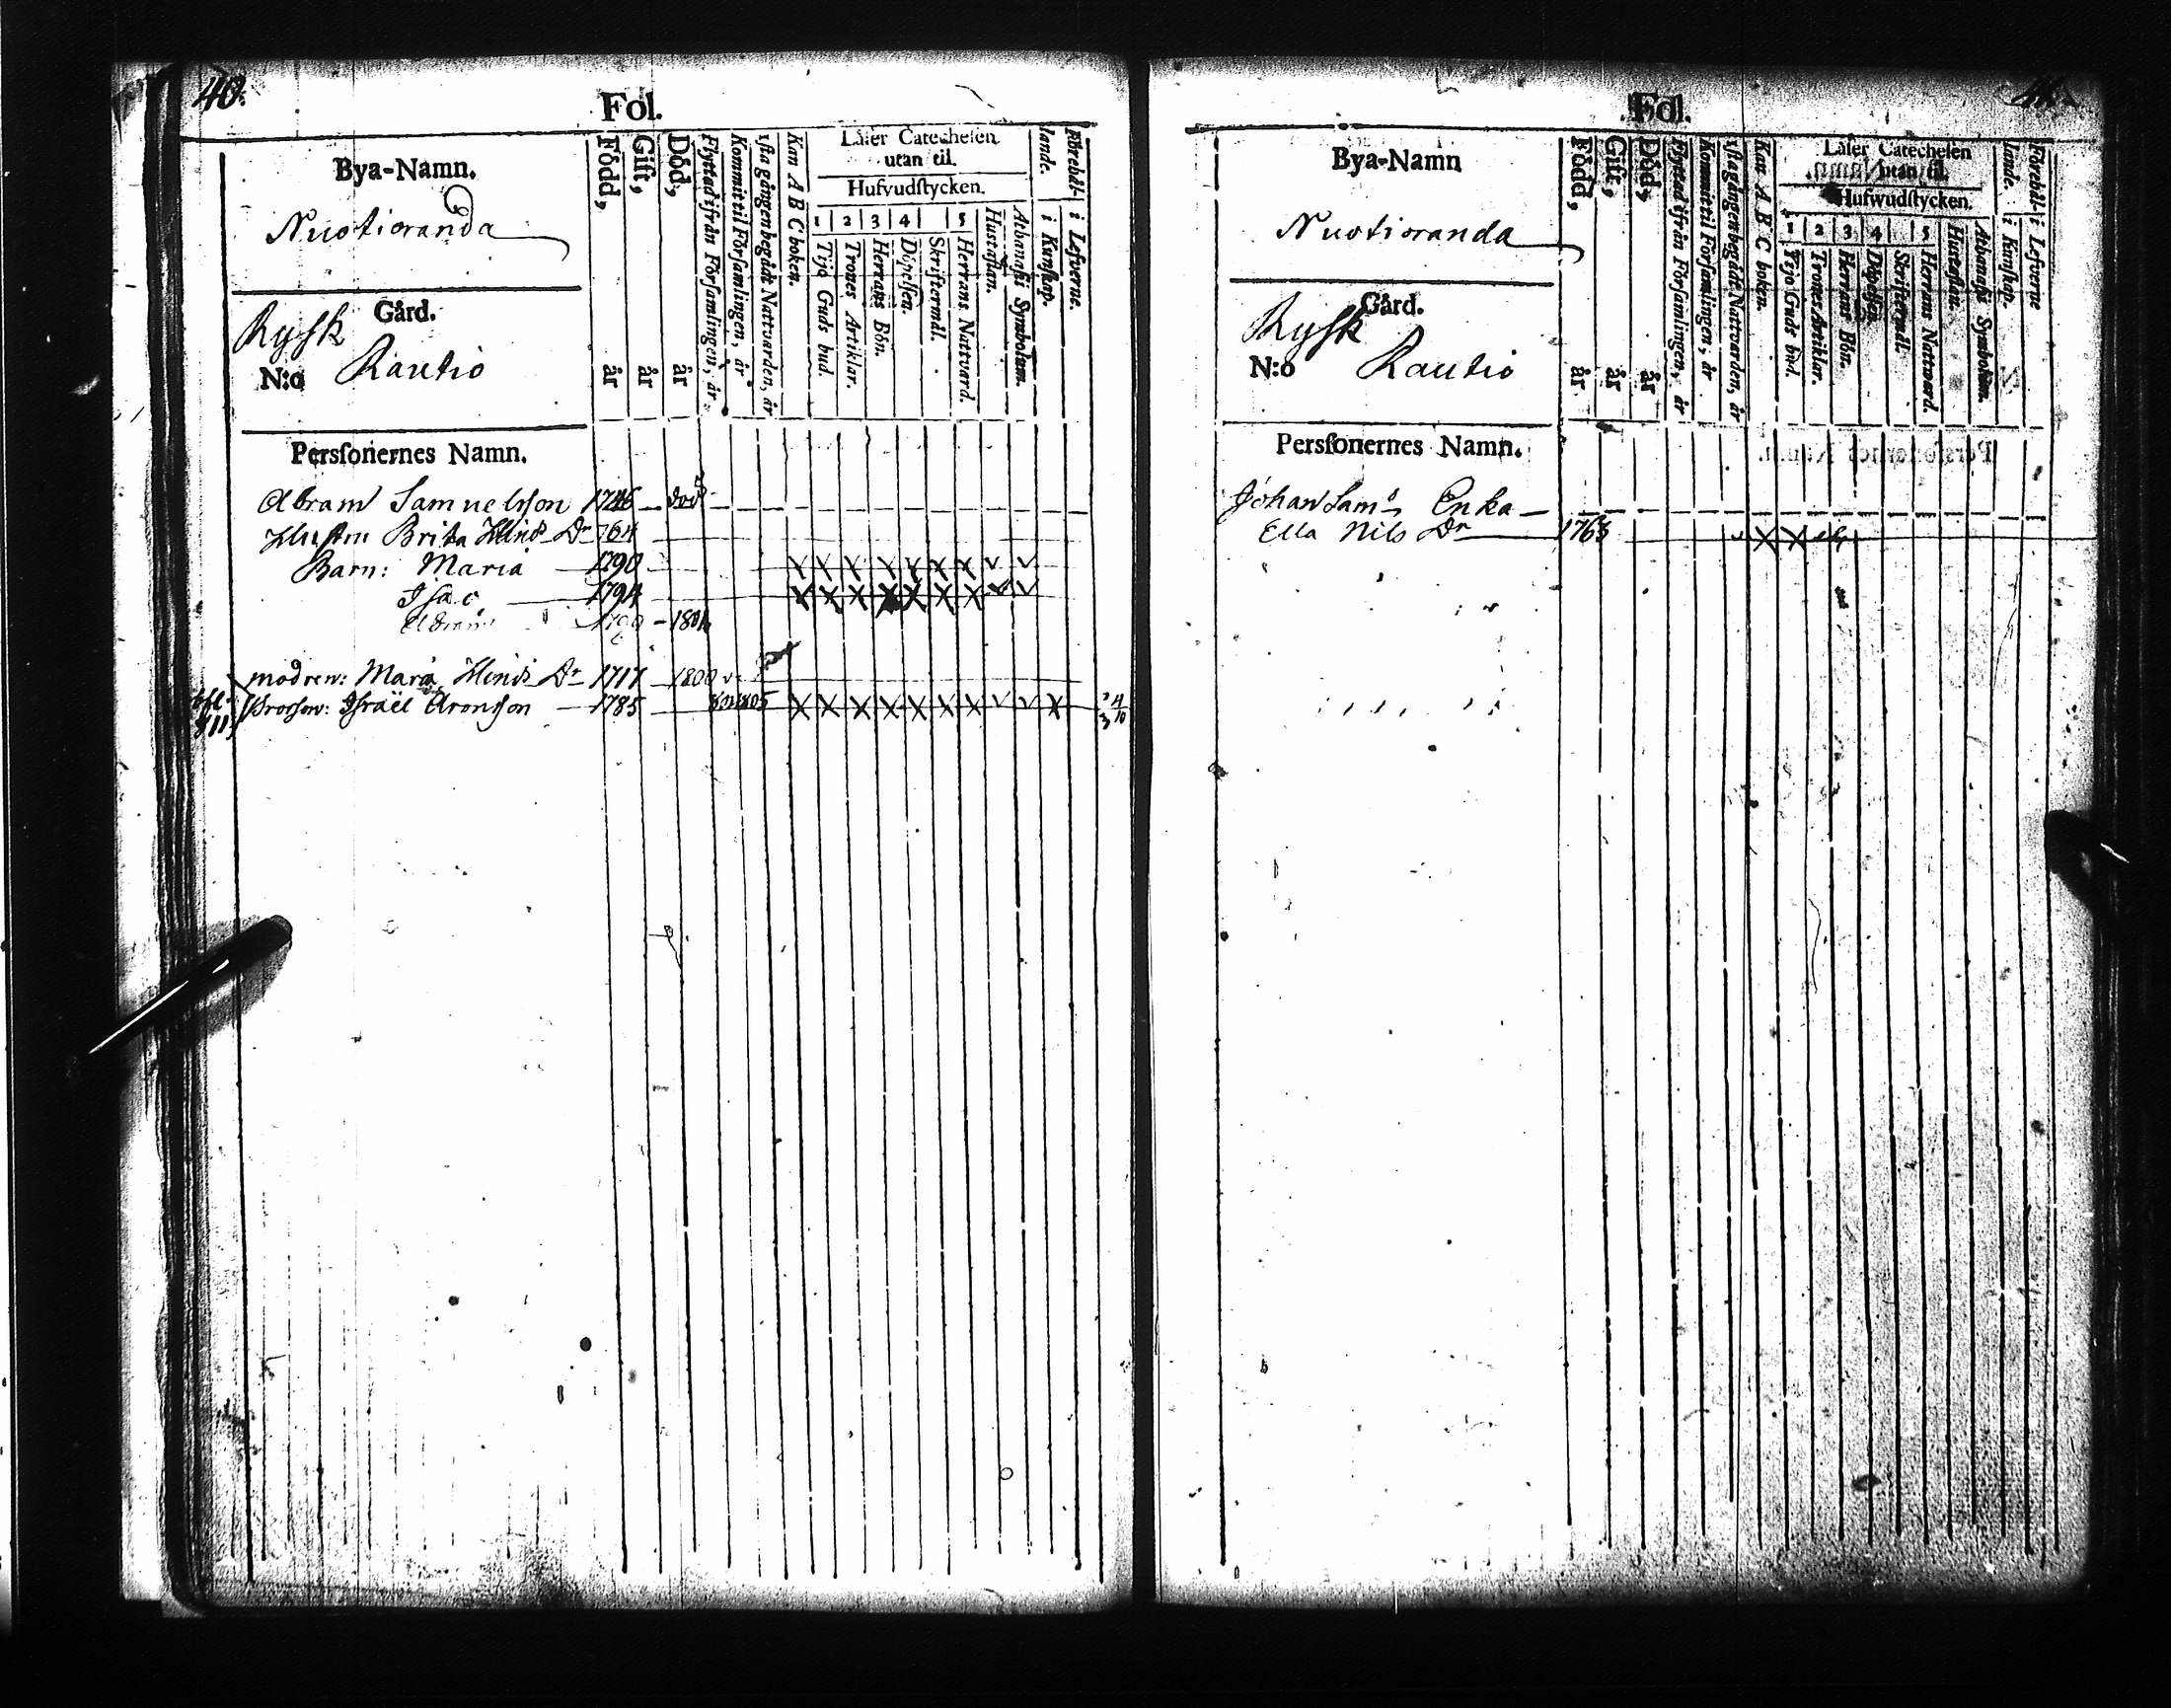 40.
Fol.
Bya-Namn.
Nuotioranda
Gård.
Rysk
N:o Rautio
Född, år
Gift, år
Död, år
Flyttad ifrån Församlingen, år
Kommit til Församlingen, år
1sta gången begådt Nattvarden, år
Kan A B C boken.
Låser Catechesen
utan til.
Hufvudstycken.
1 2 3 4 5
Tijo Guds bud.
Trones Artiklar.
Herrans Bön.
Döpelsen.
Skriftermål.
Herrans Nattvard.
Hustaflan.
Athanasii Symbolum.
Förehål-
lande.
i Kunskap.
i Lefverne.
Personernes Namn.
Abram Samuelsson 1746 död
Hustru Brita Hinds Dr 764
Barn: Maria 1790
Isac 1794
Abram 1801
modren: Maria Hinds Dr 1717 1800
Brorson: Israël Aronsson 1785 1805
Fol.
Bya-Namn
Nuotioranda
Gård.
Rysk
N:o Rautio
Född, år
Gift, år
Död, år
Flyttad ifrån Församlingen, år
Kommit til Församlingen, år
1sta gången begådt Nattvarden, år
Kan A B C boken.
Låser Catechesen
utan til.
Hufwudstycken.
1 2 3 4 5
Tijo Guds bud.
Trones Artiklar.
Herrans Bön.
Döpelsen.
Skriftermål.
Herrans Nattward.
Hustaflan.
Athanasii Symbolum.
Förehål-
lande.
i Kunskap.
i Lefverne
Personernes Namn.
Johan Sams Enka
Ella Nils Dr 1763